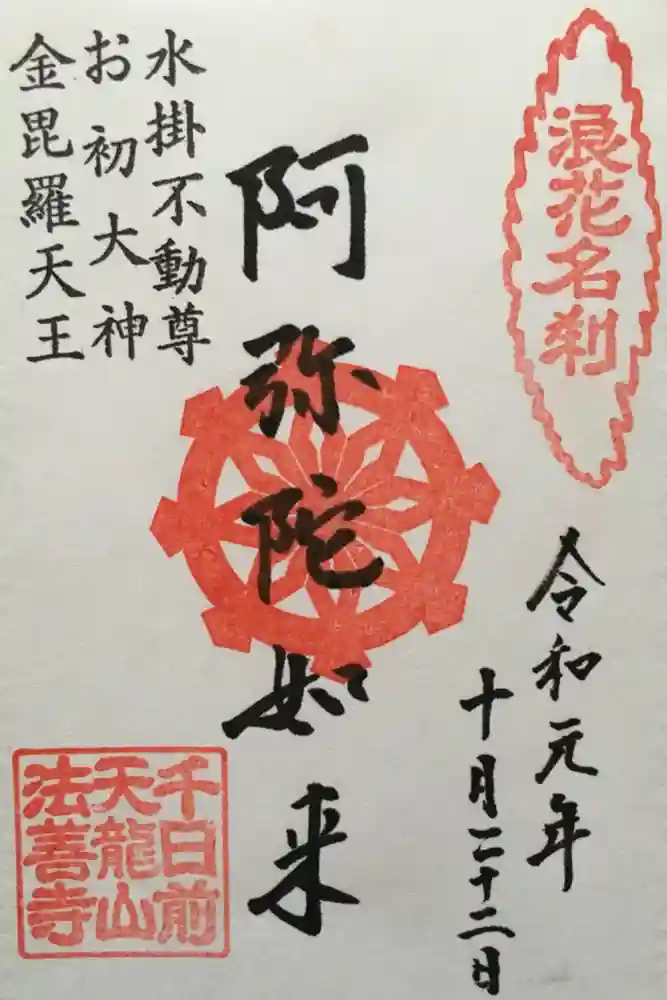 浪花名刹
令和元年
十月二十二日
阿弥陀如来
水掛不動尊
お初大神
金毘羅天王
千日前
天龍山
法善寺